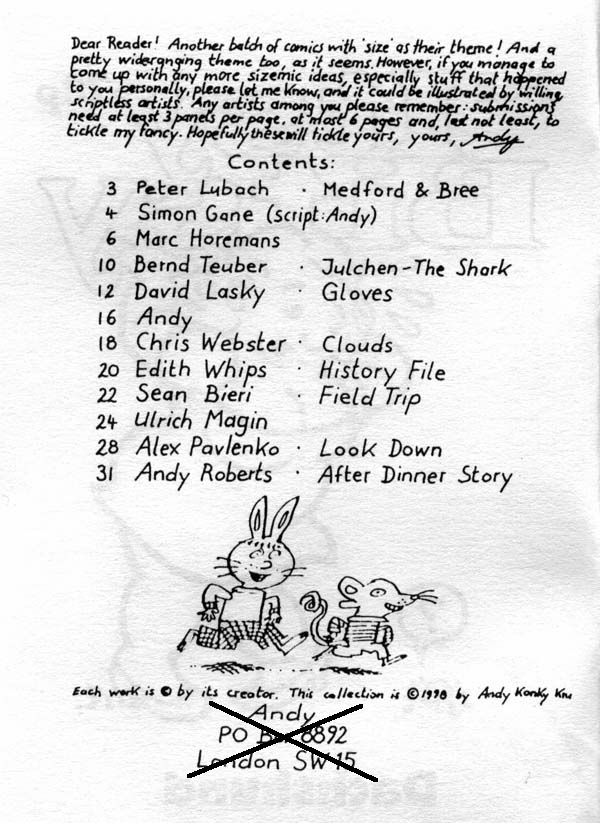 Dear Reader! Another batch of comics with 'size' as their theme! And a
pretty wideranging theme too, as it seems. However, if you manage to
come up with any more sizemic ideas, especially stuff that happened
to you personally, please let me know, and it could be illustrated by willing,
scriptless artists. Any artists among you please remember: submissions
need at least 3 panels per page, at most 6 pages and, last not least, to
tickle my fancy. Hopefully these will tickle yours, yours, Andy
Contents:
3 Peter Lubach · Medford & Bree
4 Simon Gane (script: Andy)
6 Marc Horemans
10 Bernd Teuber · Julchen - The Shark
12 David Lasky · Gloves
16 Andy
18 Chris Webster · Clouds
20 Edith Whips · History File
22 Sean Bieri · Field Trip
24 Ulrich Magin
28 Alex Pavlenko · Look Down
31 Andy Roberts · After Dinner Story
Each work is © by its creator. This collection is © 1998 by Andy Konky Kru
Andy
PO Box 8892
London SW15